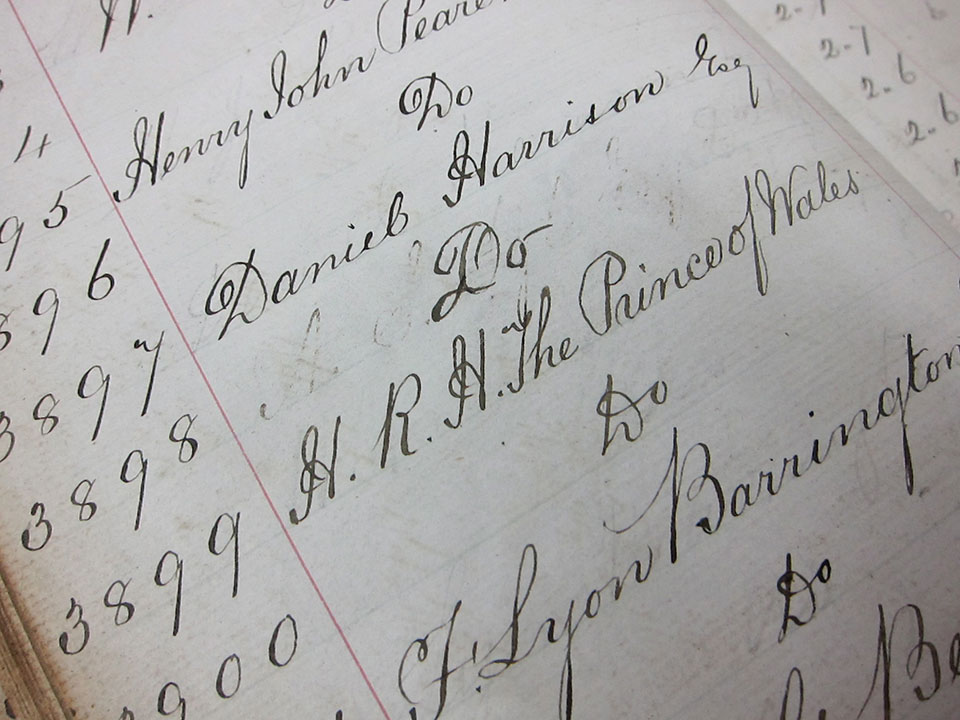 W.
4
95 Henry John Peare
896 Do
3897 Daniel Harrison Esq
3898 Do
3899 H. R. H. The Prince of Wales
900 Do
F. Lyon Barrington
Do
Be
2-7
2-6
2-6